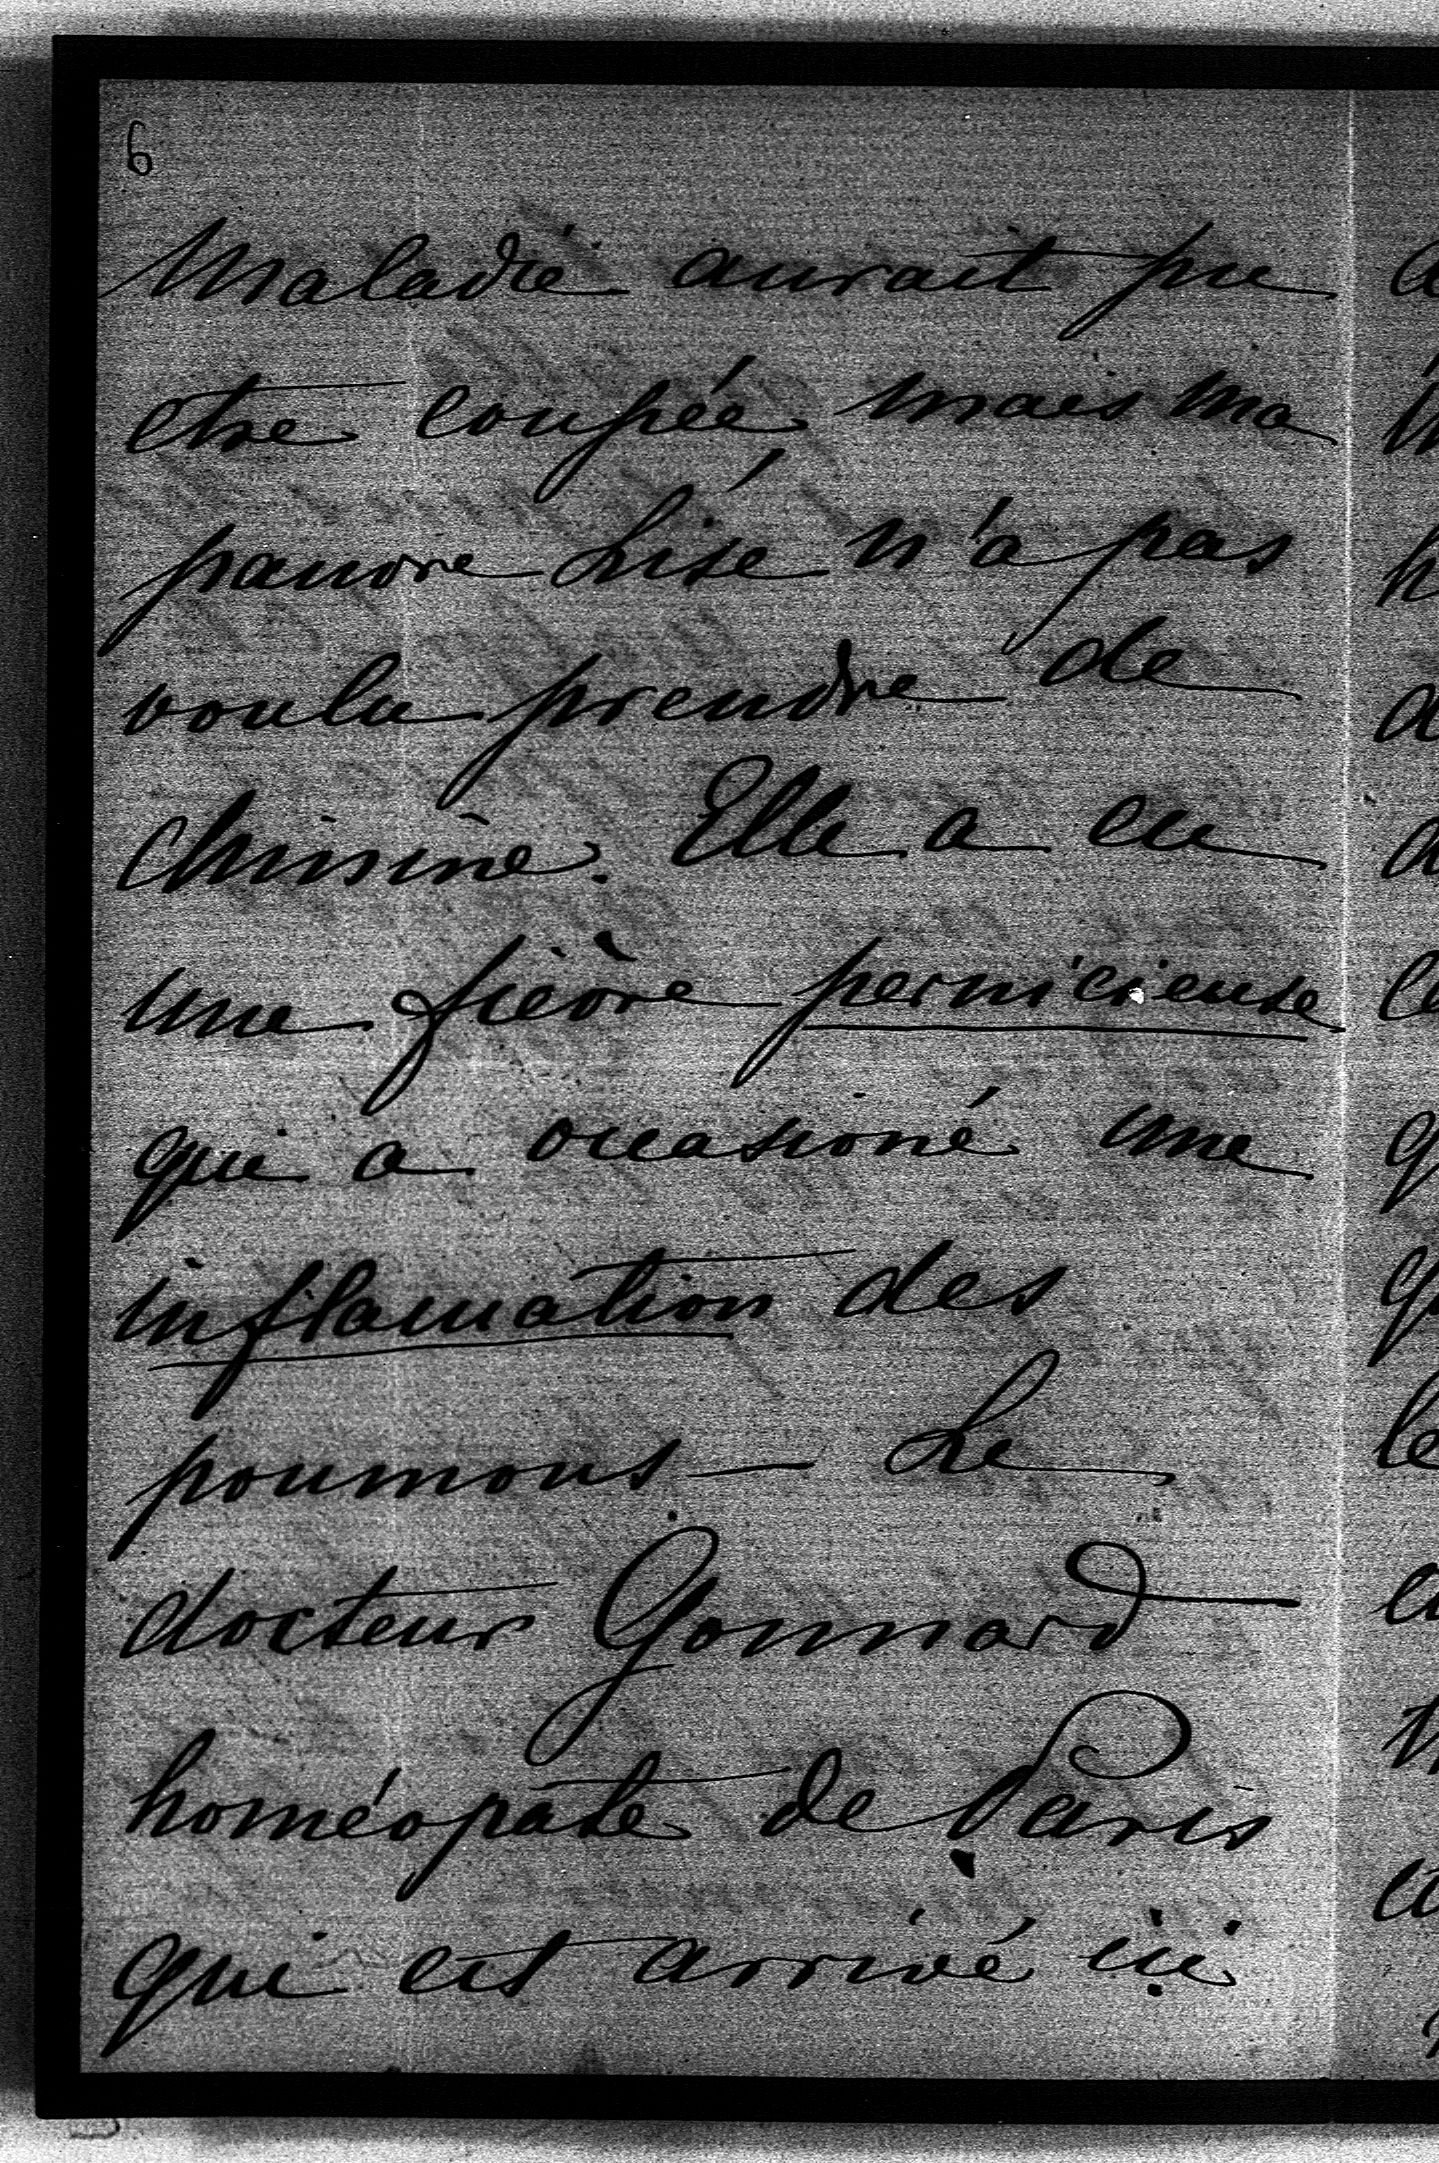 6
Maladie aurait pu
etre coupée mais ma
pauvre Lise n'a pas
voulu prendre de
Chinine. Elle a eu
une fièvre pernicieuse
qui a occasioné une
inflamation des
poumons — Le
docteur Gonnard
homéopate de Paris
qui est arrivé ici